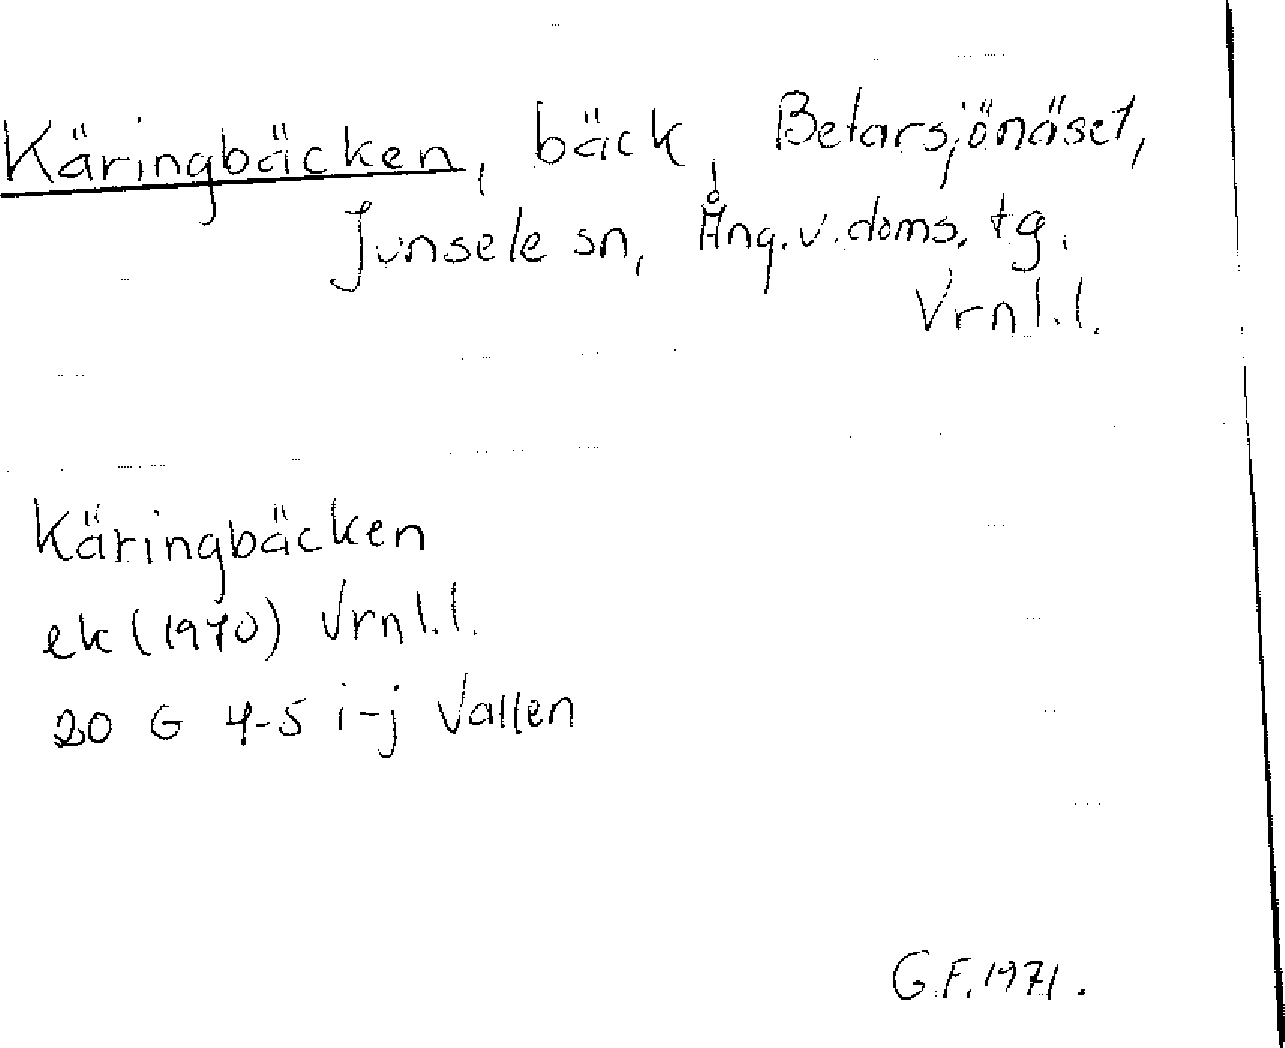 Käringbäcken, bäck, Betarsjönäset,
Junsele sn, Ång. v. doms. tg.
Vrnl.l.
Käringbäcken
ek (1970) Vrnl.l.
20 G 4-5 i-j Vallen
G.F. 1971.